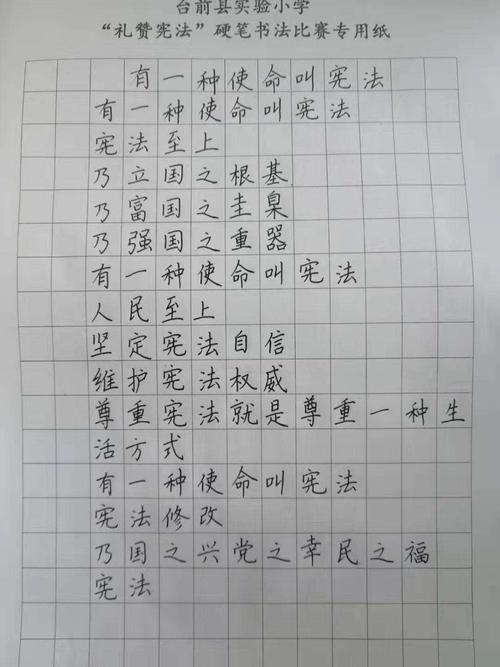 台前县实验小学
“礼赞宪法”硬笔书法比赛专用纸
有一种使命叫宪法
有一种使命叫宪法
宪法至上
乃立国之根基
乃富国之圭臬
乃强国之重器
有一种使命叫宪法
人民至上
坚定宪法自信
维护宪法权威
尊重宪法就是尊重一种生
活方式
有一种使命叫宪法
宪法修改
乃国之兴党之幸民之福
宪法